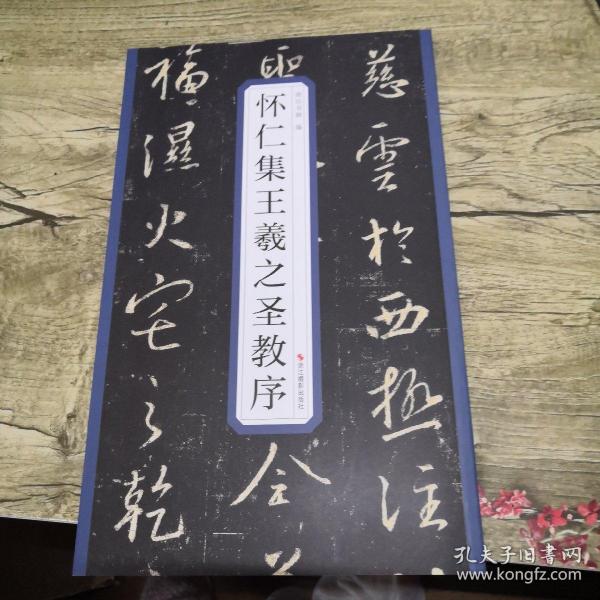 慈雲於西極注
聖
怀仁集王羲之圣教序
浙江摄影出版社
令
濕火宅之乾
孔夫子旧书网
www.kongfz.com